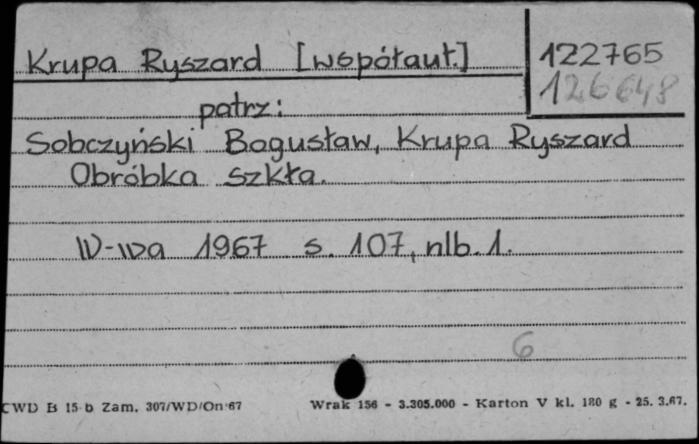 Krupa Ryszard [współaut.] 122765
126648
patrz:
Sobczyński Bogusław, Krupa Ryszard
Obróbka szkła.
W-wa 1967 s. 107, nlb. 1.
6
CWD B 15 b Zam. 307/WD/On 67 Wrak 156 - 3.305.000 - Karton V kl. 180 g - 25. 3.67.